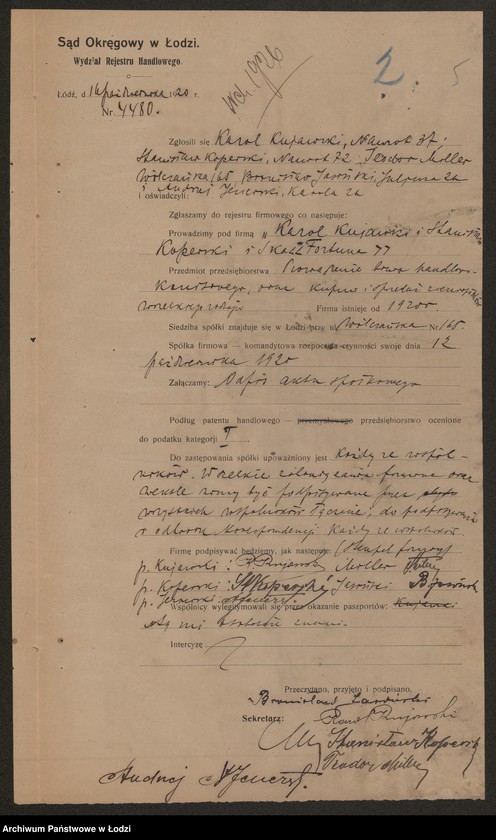 Sąd Okręgowy w Łodzi.
Wydział Rejestru Handlowego.
Łódź, d. 14 października 1920 r.
Nr. 4480.
1926
2
5
Zgłosili się Karol Kujawski, Nawrot 37,
Stanisław Koperski, Nawrot 72, Teodor Moller
Wólczańska 165 Bronisław Jasiński, Juljusza 2a
i Andrzej Karola 2a
i oświadczyli:
Zgłaszamy do rejestru firmowego co następuje:
Prowadzimy pod firmą „Karol Kujawski i Stanisław
Koperski i S-ka „Fortuna"
Przedmiot przedsiębiorstwa Prowadzenie domu handlowo
komisowego, oraz kupno i sprzedaż
wszelkiego rodzaju Firma istnieje od 1920 r.
Siedziba spółki znajduje się w Łodzi przy ul. Wólczańska Nr 165.
Spółka firmowa — komandytowa rozpoczęła czynności swoje dnia 12
października 1920
Załączamy: Odpis aktu spółkowego
Podług patentu handlowego — przemysłowego przedsiębiorstwo ocenione
do podatku kategorji I
Do zastępowania spółki upoważniony jest każdy ze wspól-
ników. Wszelkie zobowiązania prawne oraz
weksle winny być podpisywane przez
wszystkich wspólników łącznie; do podpisywania
i odbioru korespondencji każdy ze wspólników.
Firmę podpisywać będziemy, jak następuje: (Stempel firmy)
p. Kujawski: K. Kujawski Moller
p. Koperski: St. Koperski Jasiński
p.
Wspólnicy wylegitymowali się przez okazanie paszportów: Kujawski
są mi osobiście znani.
Intercyzę
Przeczytano, przyjęto i podpisano,
Bronisław Jasiński
Sekretarz: Karol Kujawski
Stanisław Koperski
Teodor Moller
Andrzej
Archiwum Państwowe w Łodzi